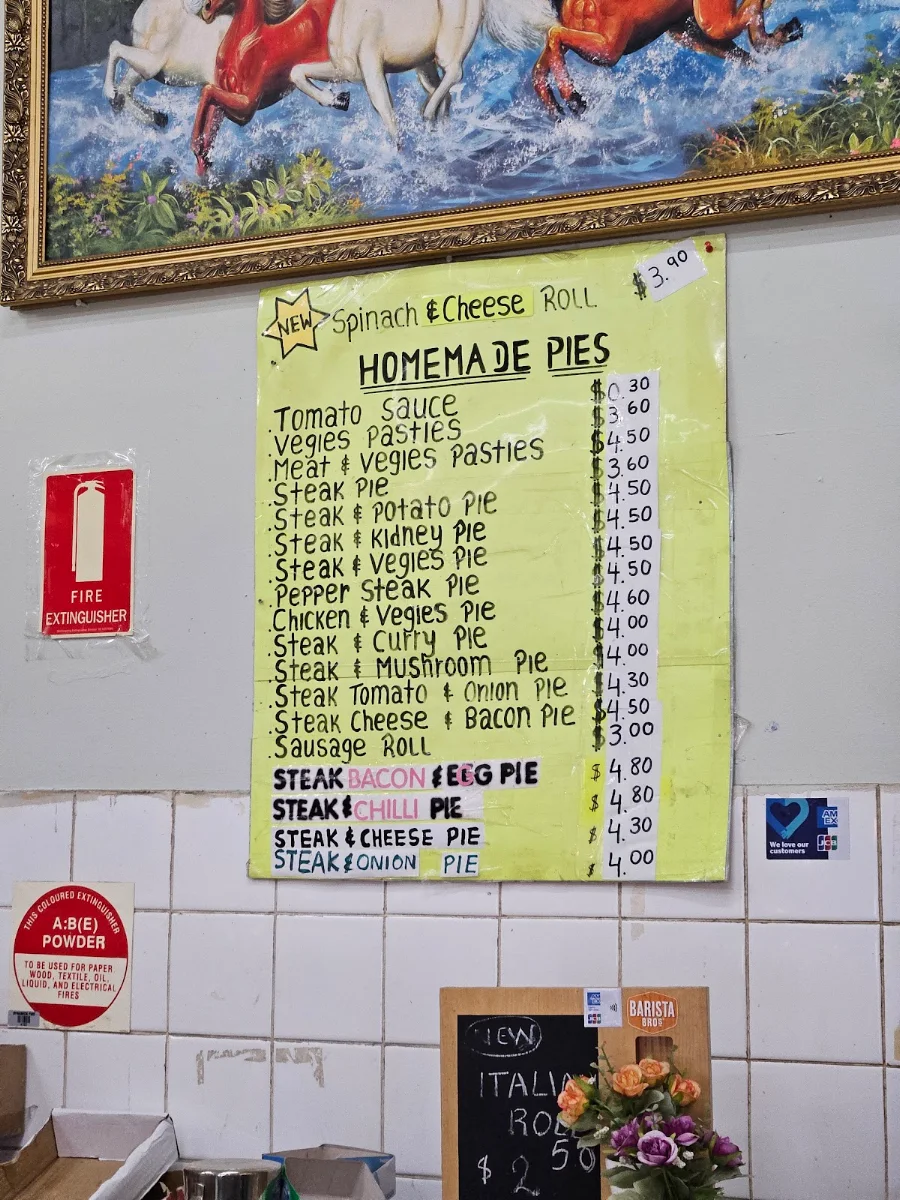 NEW Spinach & Cheese ROLL $3.90
HOMEMADE PIES
.Tomato Sauce $0.30
.Vegies Pasties $3.60
.Meat & Vegies Pasties $4.50
.Steak Pie $3.60
.Steak & Potato Pie $4.50
.Steak & Kidney Pie $4.50
.Steak & Vegies Pie $4.50
.Pepper Steak Pie $4.50
.Chicken & Vegies Pie $4.60
.Steak & Curry Pie $4.00
.Steak & Mushroom Pie $4.00
.Steak Tomato & Onion Pie $4.30
.Steak Cheese & Bacon Pie $4.50
.Sausage ROLL $3.00
STEAK BACON & EGG PIE $4.80
STEAK & CHILLI PIE $4.80
STEAK & CHEESE PIE $4.30
STEAK & ONION PIE $4.00
FIRE
EXTINGUISHER
THIS COLOURED EXTINGUISHER
A:B(E)
POWDER
TO BE USED FOR PAPER
WOOD, TEXTILE, OIL,
LIQUID, AND ELECTRICAL
FIRES
We love our
customers
AM
EX
JCB
BARISTA
BROS
NEW
ITALIAN
ROLL
$2.50